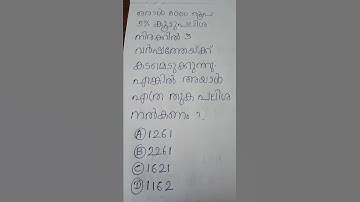 ഒരാൾ 8000 രൂപ
5% കൂട്ടുപലിശ
നിരക്കിൽ 3
വർഷത്തേയ്ക്ക്
കടമെടുക്കുന്നു.
എങ്കിൽ അയാൾ
എത്ര തുക പലിശ
നൽകണം ?
Ⓐ 1261
Ⓑ 2261
Ⓒ 1621
Ⓓ 1162